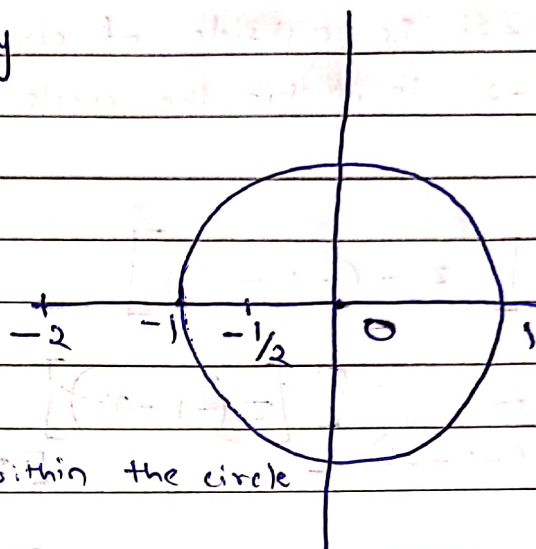 y
-2 -1 -1/2 0 1
within the circle